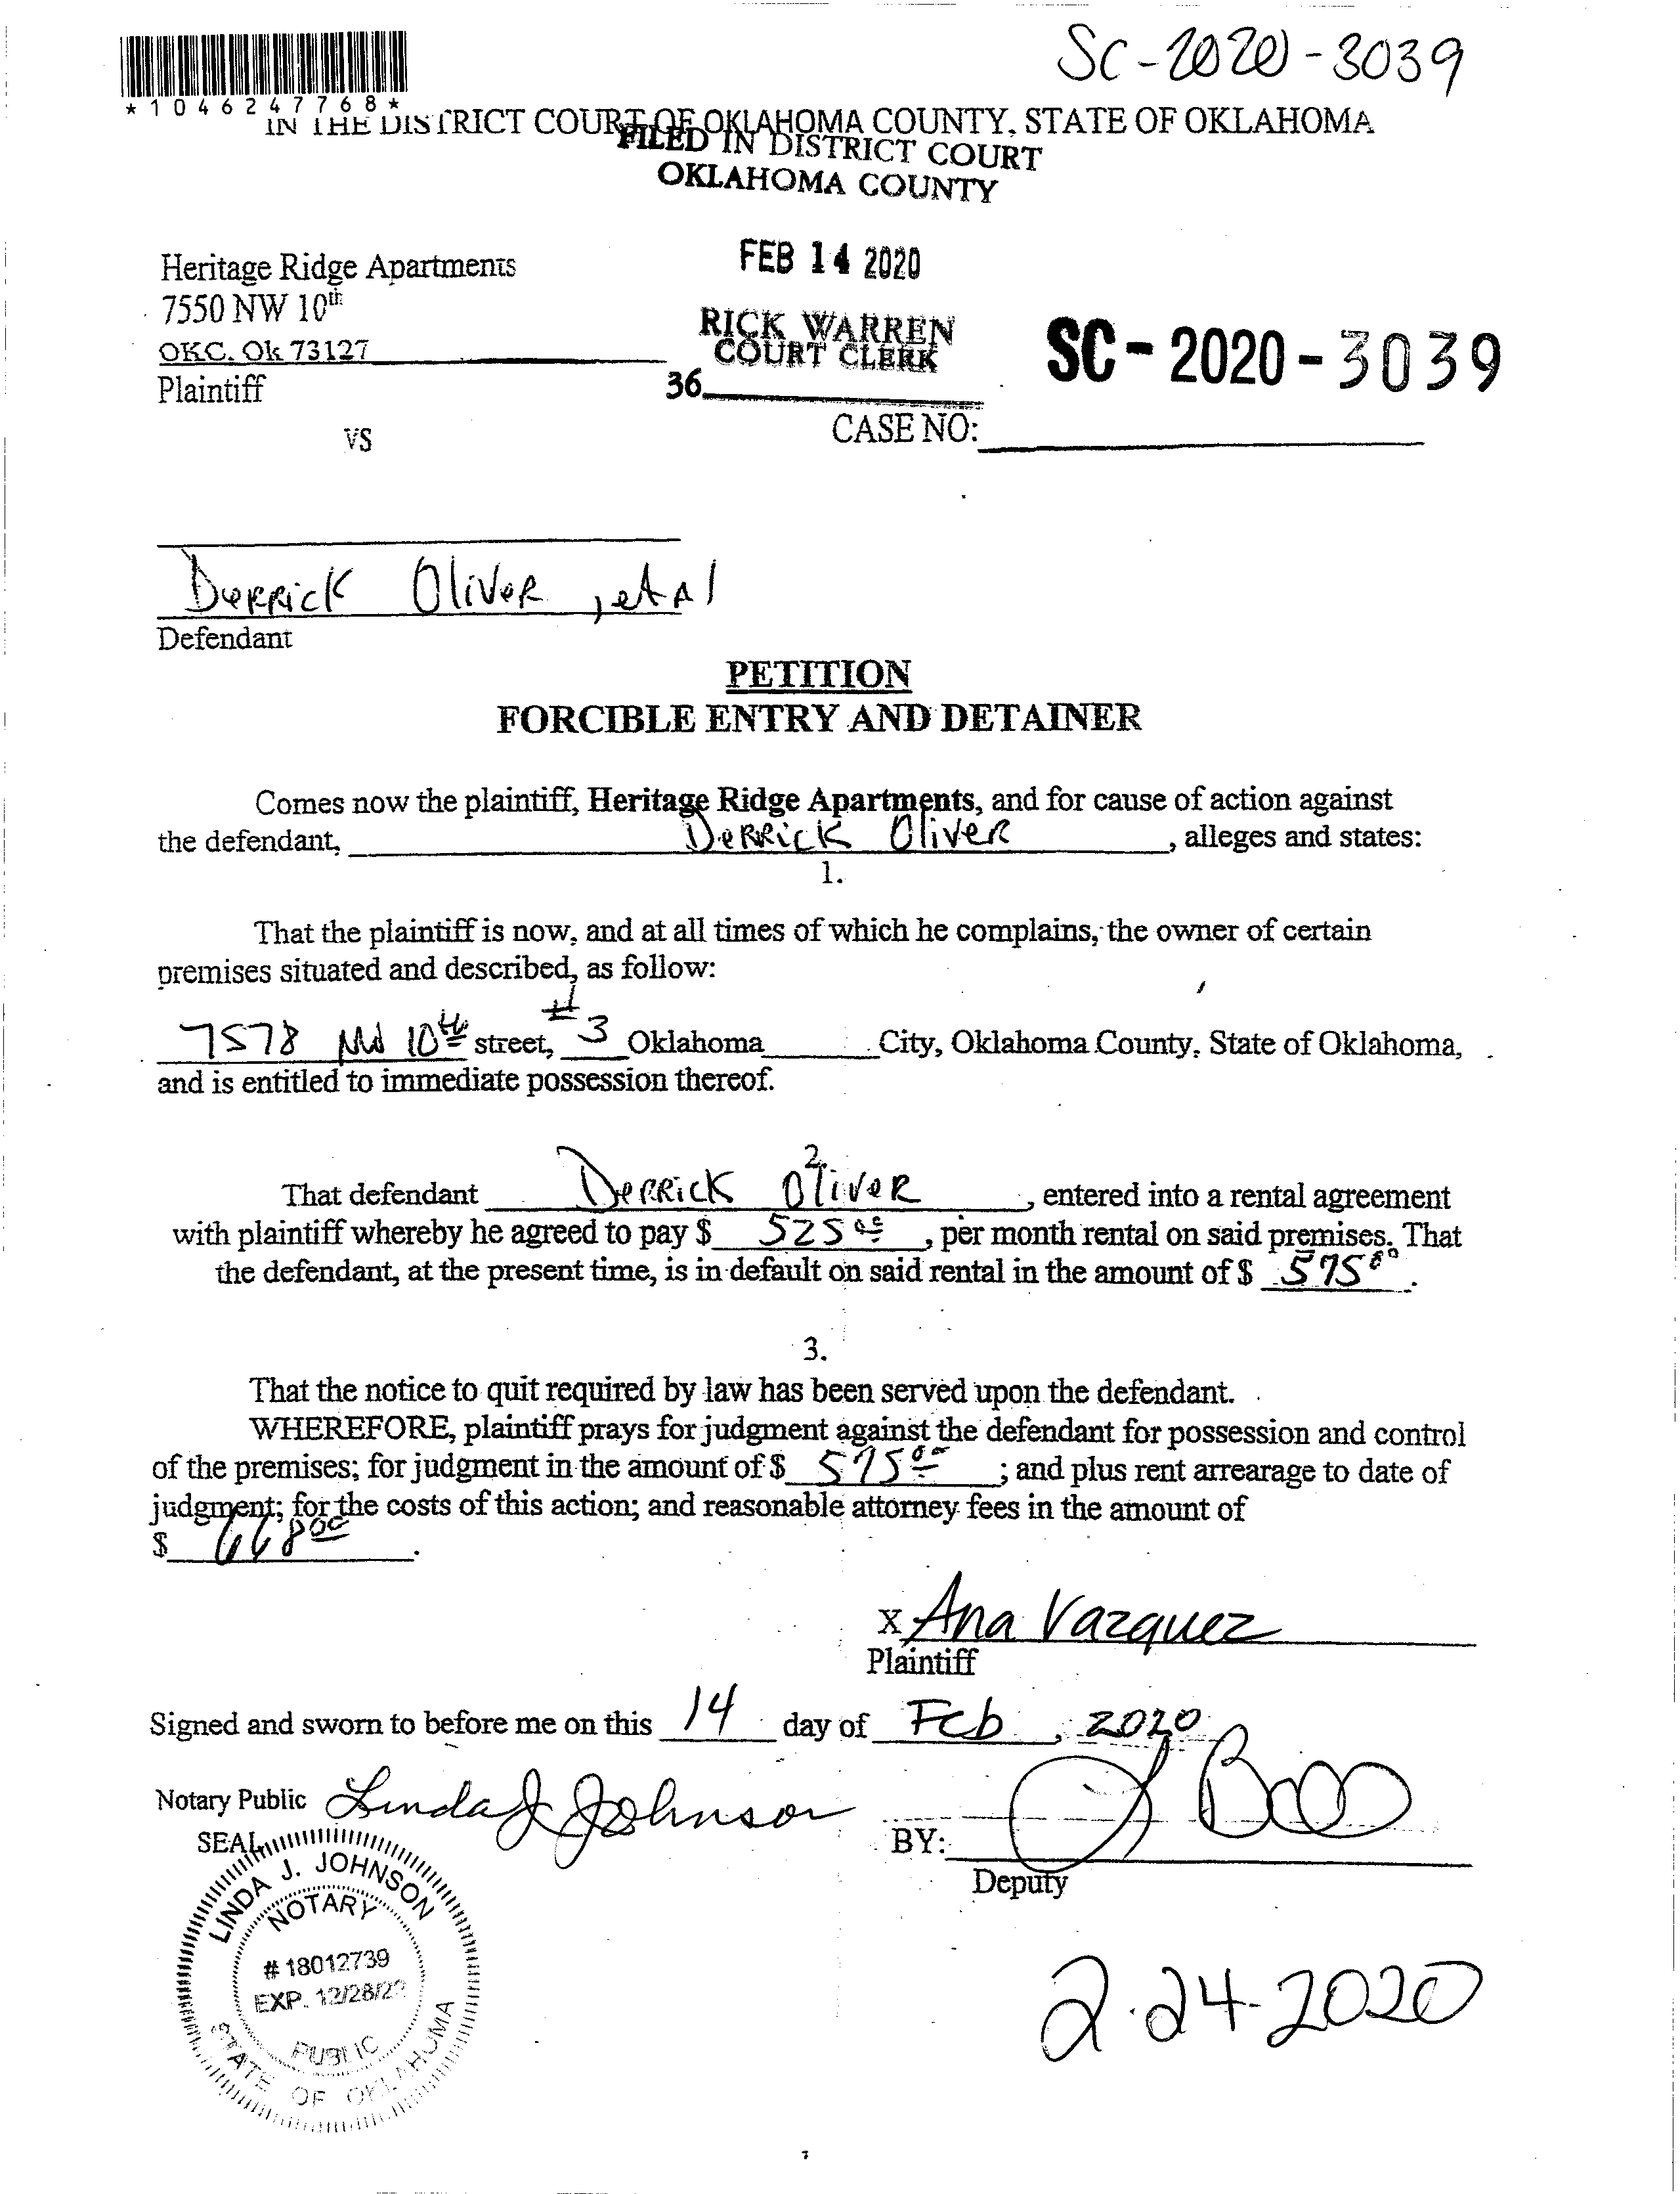 SC-2020-3039
*1046247768*
IN THE DISTRICT COURT OF OKLAHOMA COUNTY, STATE OF OKLAHOMA
FILED IN DISTRICT COURT
OKLAHOMA COUNTY
Heritage Ridge Apartments
FEB 14 2020
7550 NW 10th
RICK WARREN
COURT CLERK
SC-2020-3039
OKC, Ok 73127
Plaintiff
36
VS
CASE NO:
Derrick Oliver, et al
Defendant
PETITION
FORCIBLE ENTRY AND DETAINER
Comes now the plaintiff, Heritage Ridge Apartments, and for cause of action against
the defendant, Derrick Oliver, alleges and states:
1.
That the plaintiff is now, and at all times of which he complains, the owner of certain
premises situated and described, as follow:
7578 NW 10th street, #3 Oklahoma City, Oklahoma County, State of Oklahoma,
and is entitled to immediate possession thereof.
2.
That defendant Derrick Oliver, entered into a rental agreement
with plaintiff whereby he agreed to pay $ 525.00, per month rental on said premises. That
the defendant, at the present time, is in default on said rental in the amount of $ 575.00.
3.
That the notice to quit required by law has been served upon the defendant.
WHEREFORE, plaintiff prays for judgment against the defendant for possession and control
of the premises; for judgment in the amount of $ 575.00; and plus rent arrearage to date of
judgment; for the costs of this action; and reasonable attorney fees in the amount of
$ 668.00.
X Ana Vazquez
Plaintiff
Signed and sworn to before me on this 14 day of Feb, 2020
Notary Public Linda J Johnson
SEAL
BY:
Deputy
LINDA J. JOHNSON
NOTARY
# 18012739
EXP. 12/28/2
PUBLIC
STATE OF OKLAHOMA
2-24-2020